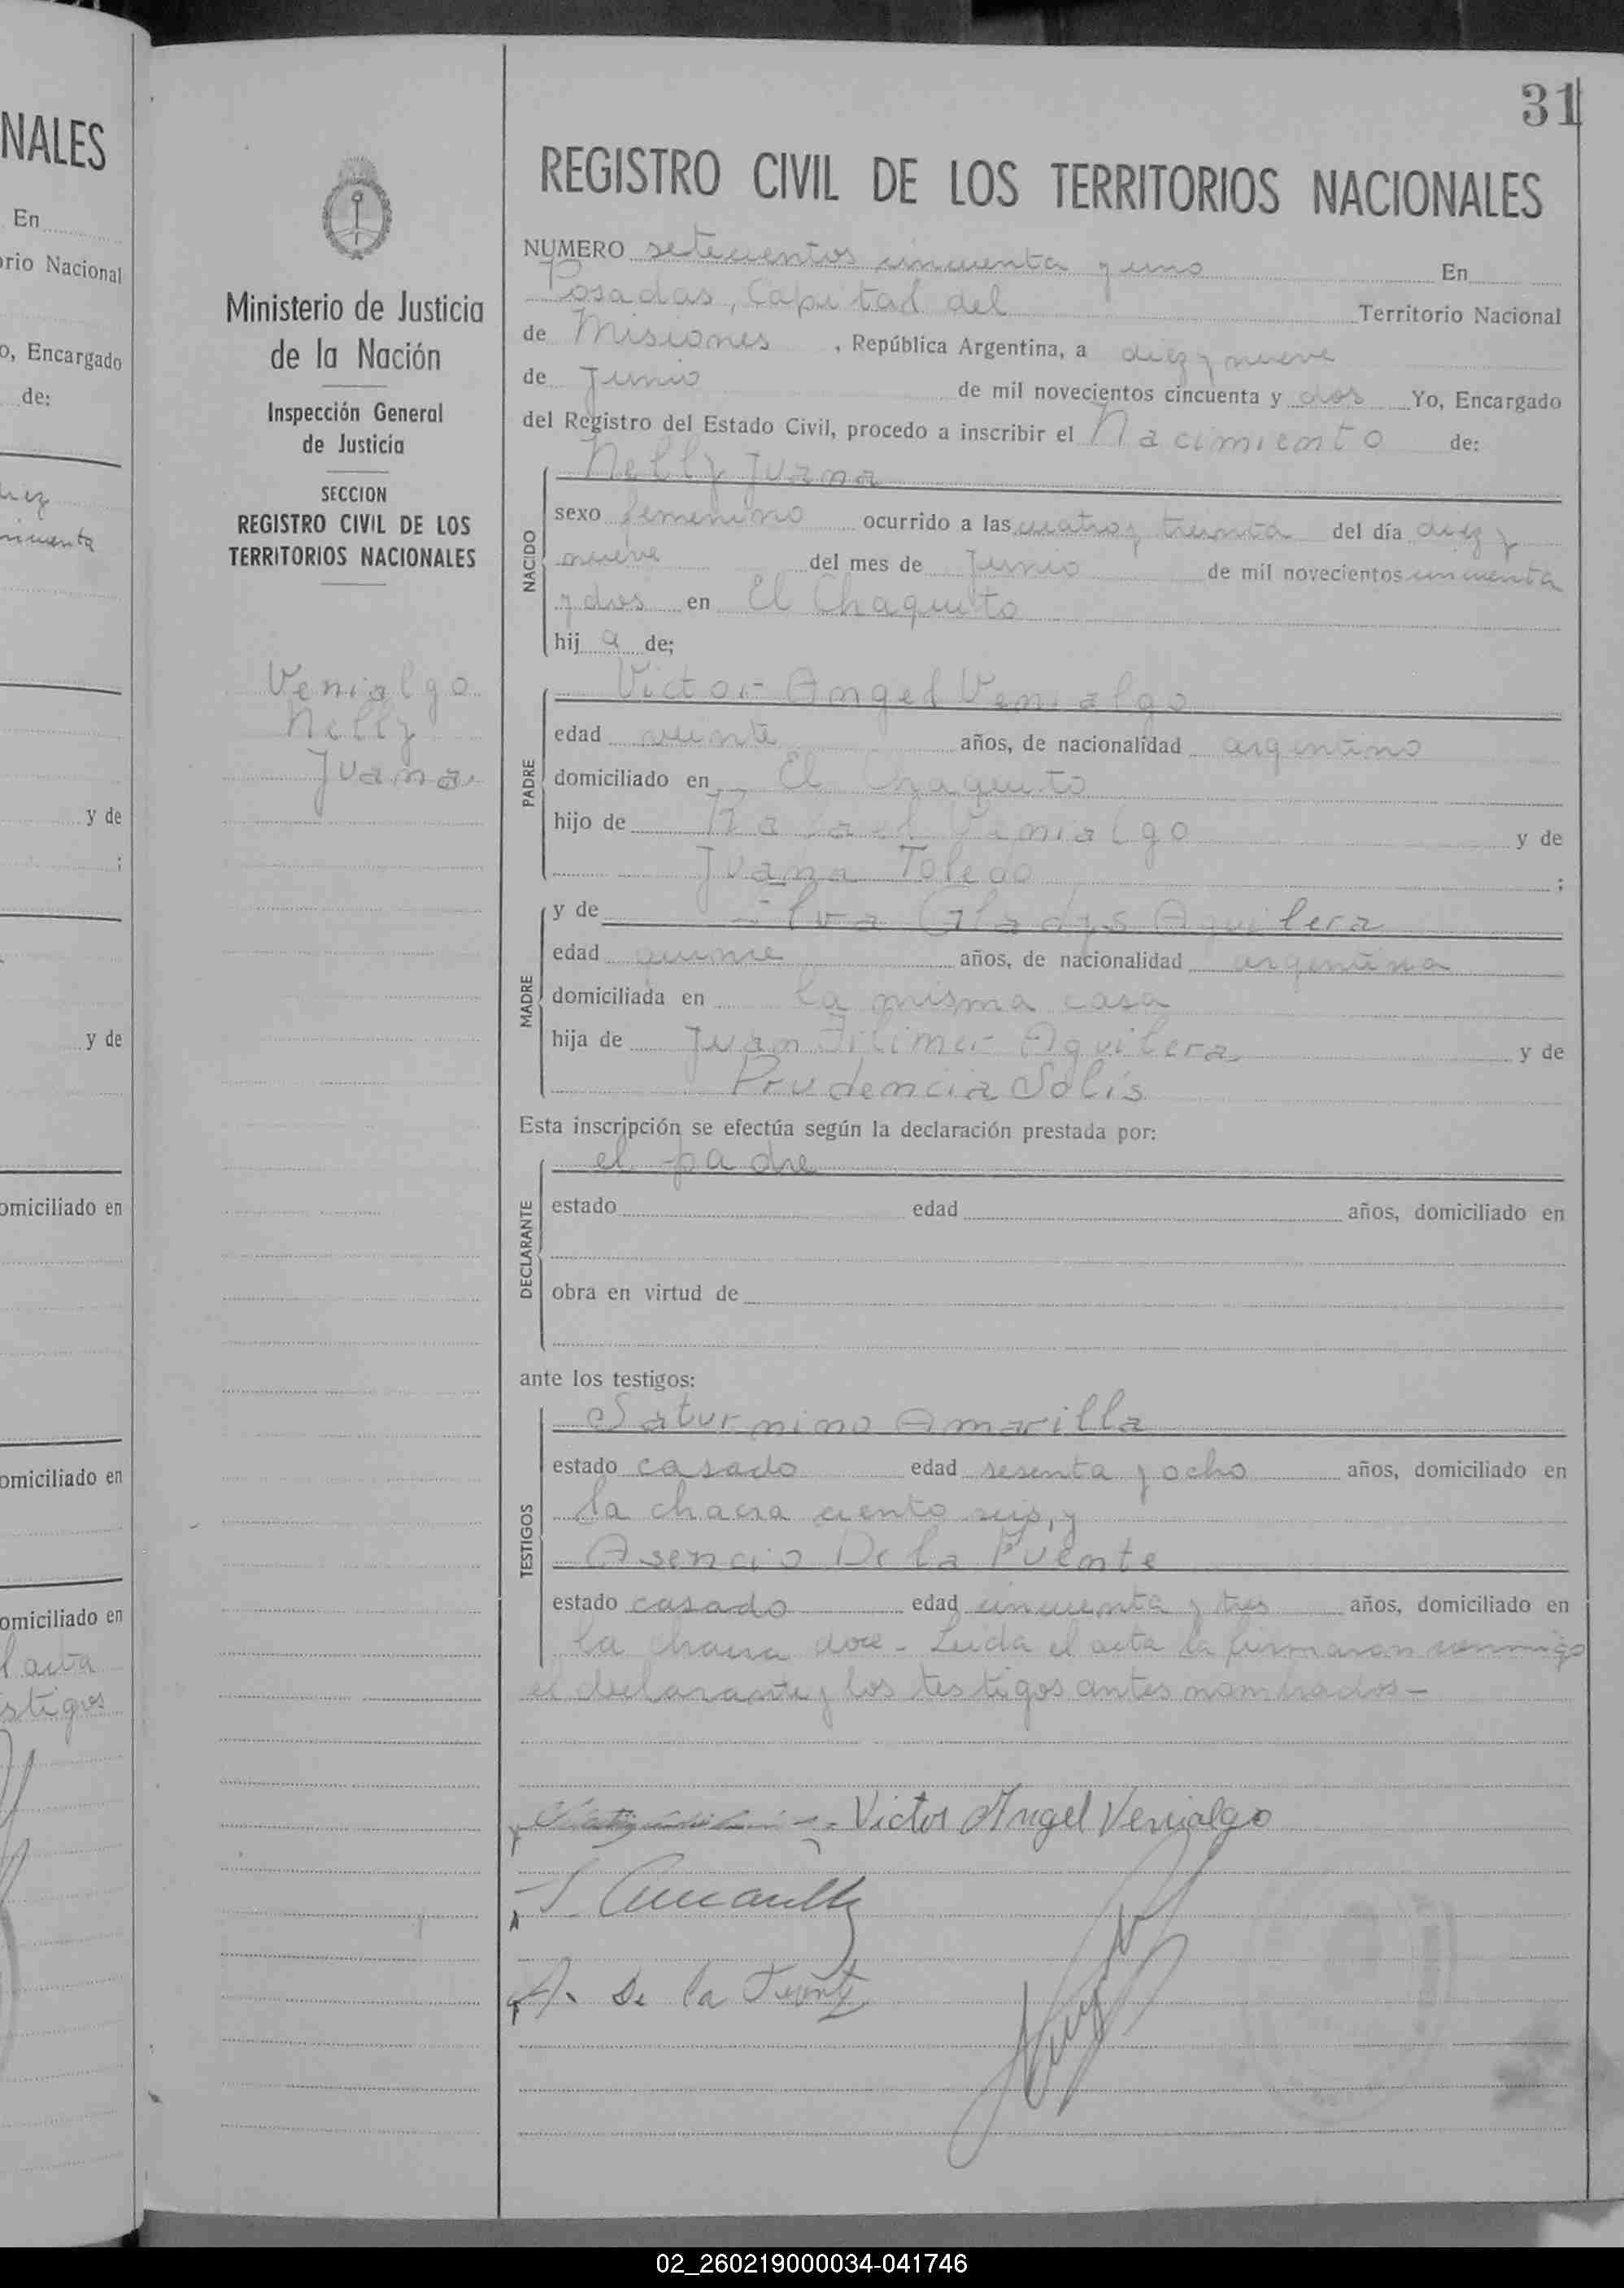 NALES
En
orio Nacional
o, Encargado
de:
y de
;
y de
omiciliado en
omiciliado en
omiciliado en
l acta
stigos
Ministerio de Justicia
de la Nación
Inspección General
de Justicia
SECCION
REGISTRO CIVIL DE LOS
TERRITORIOS NACIONALES
Venialgo
Nelly
Juana
31
REGISTRO CIVIL DE LOS TERRITORIOS NACIONALES
NUMERO setecientos cincuenta y uno En
Posadas, Capital del Territorio Nacional
de Misiones , República Argentina, a diez y nueve
de Junio de mil novecientos cincuenta y dos Yo, Encargado
del Registro del Estado Civil, procedo a inscribir el Nacimiento de:
Nelly Juana
NACIDO
sexo femenino ocurrido a las cuatro y treinta del día diez y
nueve del mes de Junio de mil novecientos cincuenta
y dos en El Chaquito
hij a de;
Victor Angel Venialgo
PADRE
edad veinte años, de nacionalidad argentino
domiciliado en El Chaquito
hijo de Rafael Venialgo y de
Juana Toledo ;
y de Gladys Aguilera
MADRE
edad quince años, de nacionalidad argentina
domiciliada en la misma casa
hija de Juan Aguilera y de
Prudencia Solís
Esta inscripción se efectúa según la declaración prestada por:
el padre
DECLARANTE
estado edad años, domiciliado en
obra en virtud de
ante los testigos:
Saturnino Amarilla
TESTIGOS
estado casado edad sesenta y ocho años, domiciliado en
la chacra ciento seis, y
Asencio De la Puente
estado casado edad cincuenta y tres años, domiciliado en
la chacra doce - Leida el acta la firmaron conmigo
el declarante y los testigos antes nombrados -
Victor Angel Venialgo
S. Amarilla
A. De la Puente
02_260219000034-041746